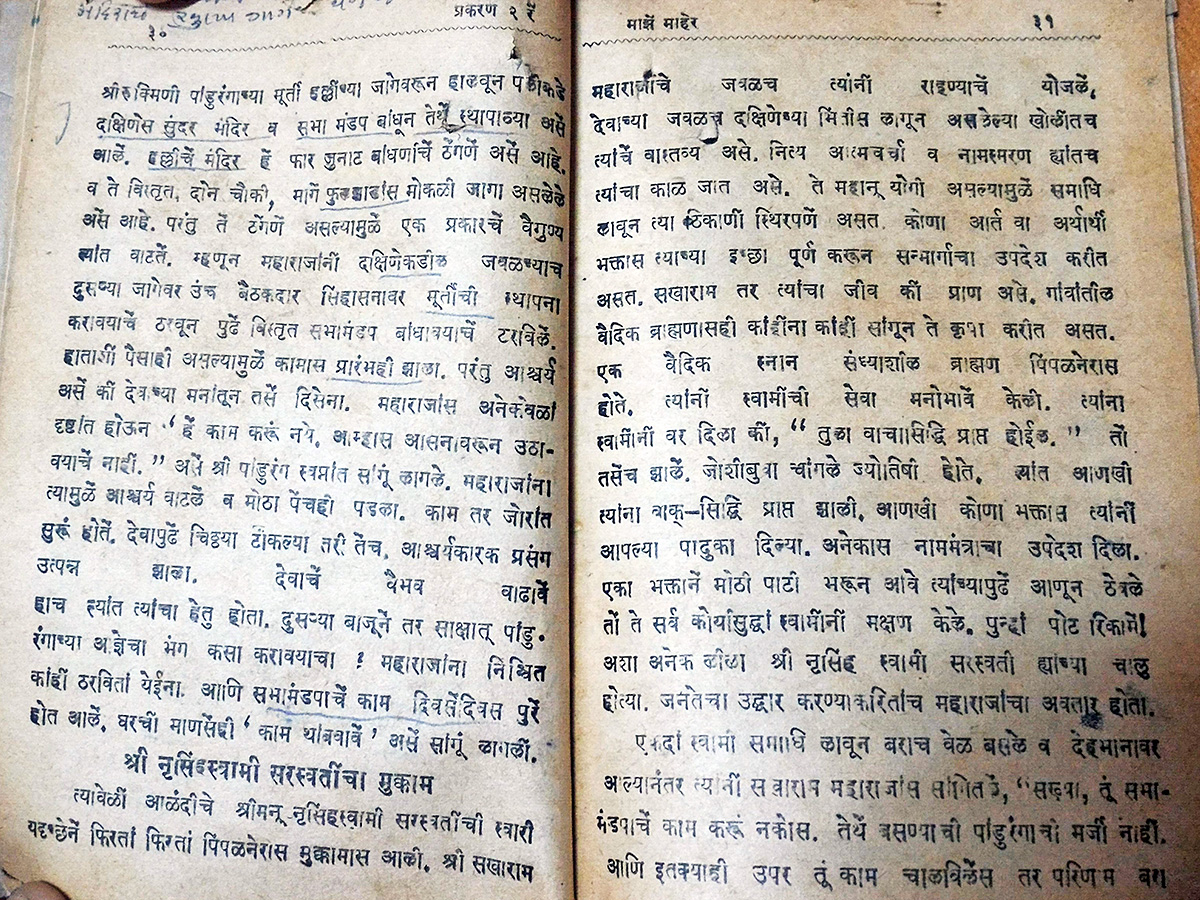 प्रकरण २ रें
३०
श्रीरुक्मिणी पांडुरंगाच्या मूर्ती हल्लींच्या जागेवरून हालवून पलीकडे
दक्षिणेस सुंदर मंदिर व सभा मंडप बांधून तेथें स्थापाव्या असें
आलें. हल्लींचें मंदिर हें फार जुनाट बांधणीचें ठेंगणें असें आहे.
व ते विस्तृत, दोन चौकी, मागें फुलझाडांस मोकळी जागा असलेलें
असें आहे. परंतु तें ठेंगणें असल्यामुळें एक प्रकारचें वैगुण्य
ह्यांत वाटतें. म्हणून महाराजांनीं दक्षिणेकडील जवळच्याच
दुसऱ्या जागेवर उंच बैठकदार सिंहासनावर मूर्तीची स्थापना
करावयाचें ठरवून पुढें विस्तृत सभामंडप बांधावयाचें ठरविलें.
हाताशीं पैसाही असल्यामुळें कामास प्रारंभही झाला. परंतु आश्चर्य
असें कीं देवाच्या मनांतून तसें दिसेना. महाराजांस अनेकवेळां
दृष्टांत होऊन ‘ हें काम करूं नये, आम्हास आसनावरून उठा-
वयाचें नाहीं. ” असें श्री पांडुरंग स्वप्नांत सांगूं लागले. महाराजांना
त्यामुळें आश्चर्य वाटलें व मोठा पेंचही पडला. काम तर जोरांत
सुरूं होतें. देवापुढें चिठ्ठया टाकल्या तरी तेंच, आश्चर्यकारक प्रसंग
उत्पन्न झाला. देवाचें वैभव वाढावें
हाच ह्यांत त्यांचा हेतु होता. दुसऱ्या बाजूनें तर साक्षात् पांडु-
रंगाच्या आज्ञेचा भंग कसा करावयाचा ? महाराजांना निश्चित
कांहीं ठरवितां येईना. आणि सभामंडपाचें काम दिवसेंदिवस पुरें
होत आलें. घरचीं माणसेंही ‘ काम थांबवावें ’ असें सांगूं लागलीं.
श्री नृसिंहस्वामी सरस्वतींचा मुक्काम
त्यावेळीं आळंदीचे श्रीमन्-नृसिंहस्वामी सरस्वतींची स्वारी
यदृच्छेनें फिरतां फिरतां पिंपळनेरास मुक्कामास आली. श्री सखाराम
माझें माहेर
३१
महाराजांचे जवळच त्यांनीं राहण्याचें योजलें.
देवाच्या जवळच दक्षिणेच्या भिंतीस लागून असलेल्या खोलींतच
त्यांचें वास्तव्य असे. नित्य आत्मचर्चा व नामस्मरण ह्यांतच
त्यांचा काळ जात असे. ते महान् योगी असल्यामुळें समाधि
लावून त्या ठिकाणीं स्थिरपणें असत. कोणा आर्त वा अर्थार्थी
भक्तास त्याच्या इच्छा पूर्ण करून सन्मार्गाचा उपदेश करीत
असत. सखाराम तर त्यांचा जीव कीं प्राण असे. गांवांतील
वैदिक ब्राह्मणासही कांहींना कांहीं सांगून ते कृपा करीत असत.
एक वैदिक स्नान संध्याशील ब्राह्मण पिंपळनेरास
होते. त्यांनीं स्वामींची सेवा मनोभावें केली. त्यांना
स्वामींनीं वर दिला कीं, “ तुला वाचासिद्धि प्राप्त होईल. ” तों
तसेंच झालें. जोशीबुवा चांगले ज्योतिषी होते. ह्यांत आणखी
त्यांना वाक्-सिद्धि प्राप्त झाली. आणखी कोणा भक्तास त्यांनीं
आपल्या पादुका दिल्या. अनेकास नाममंत्राचा उपदेश दिला.
एका भक्तानें मोठी पाटी भरून आंबे त्यांच्यापुढें आणून ठेवले
तों ते सर्व कोयांसुद्धां स्वामींनीं भक्षण केले. पुन्हां पोट रिकामें!
अशा अनेक लीला श्री नृसिंह स्वामी सरस्वती ह्यांच्या चालु
होत्या. जनतेचा उद्धार करण्याकरितांच महाराजांचा अवतार होता.
एकदां स्वामी समाधि लावून बराच वेळ बसले व देहभानावर
आल्यानंतर त्यांनीं सखाराम महाराजांस सांगितलें, “सख्या, तूं सभा-
मंडपाचें काम करूं नकोस. तेथें बसण्याची पांडुरंगाची मर्जी नाहीं.
आणि इतक्याही उपर तूं काम चालविलेंस तर परिणाम बरा